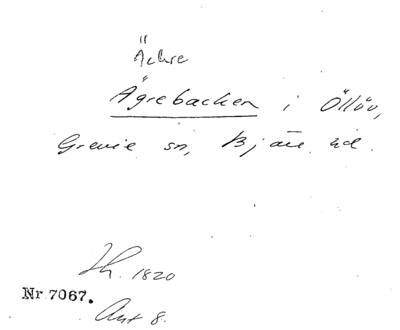 Äckre
Ägrebacken i Öllöv,
Grevie sn, Bjäre hd.
Th. 1820
Nr 7067.
Avt 8.